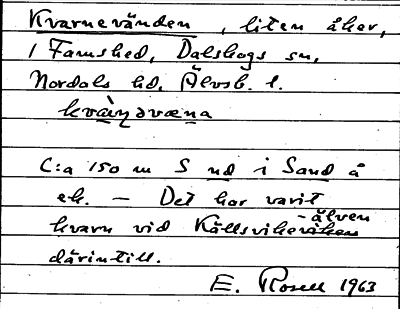 Kvarnevänden, liten åker,
1 Famshed, Dalskogs sn,
Nordals hd, Älvsb. l.
kvàɳəvæna
C:a 150 m S nd i Sand å
ek. — Det har varit
kvarn vid Källsvike-älven
därintill.
E. Rosell 1963